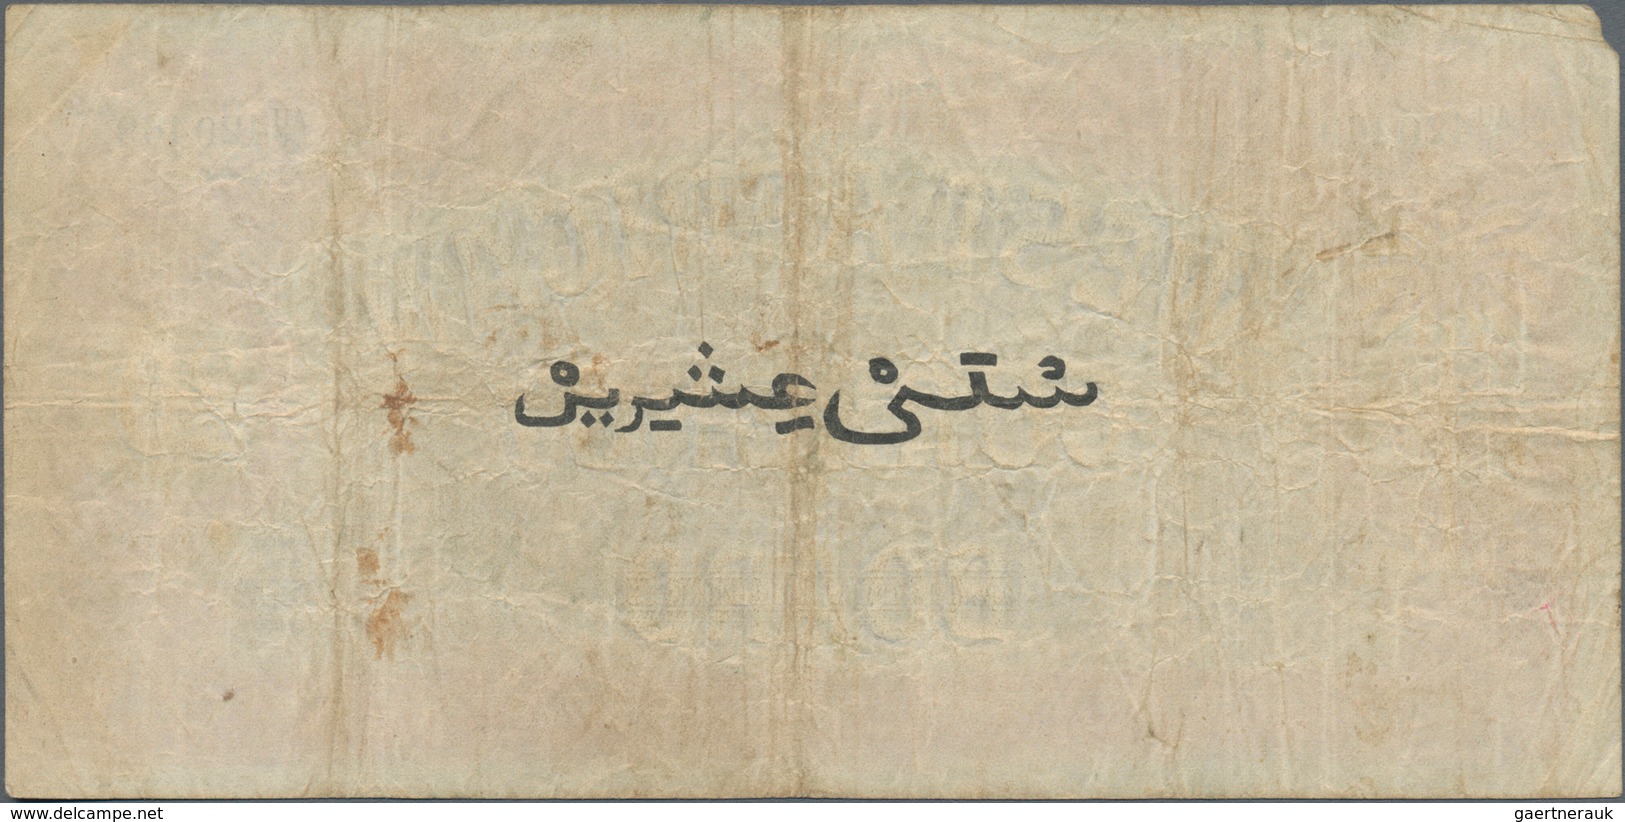 سُتىْ عِشيرينْ
delcampe.net
gaertnerauk